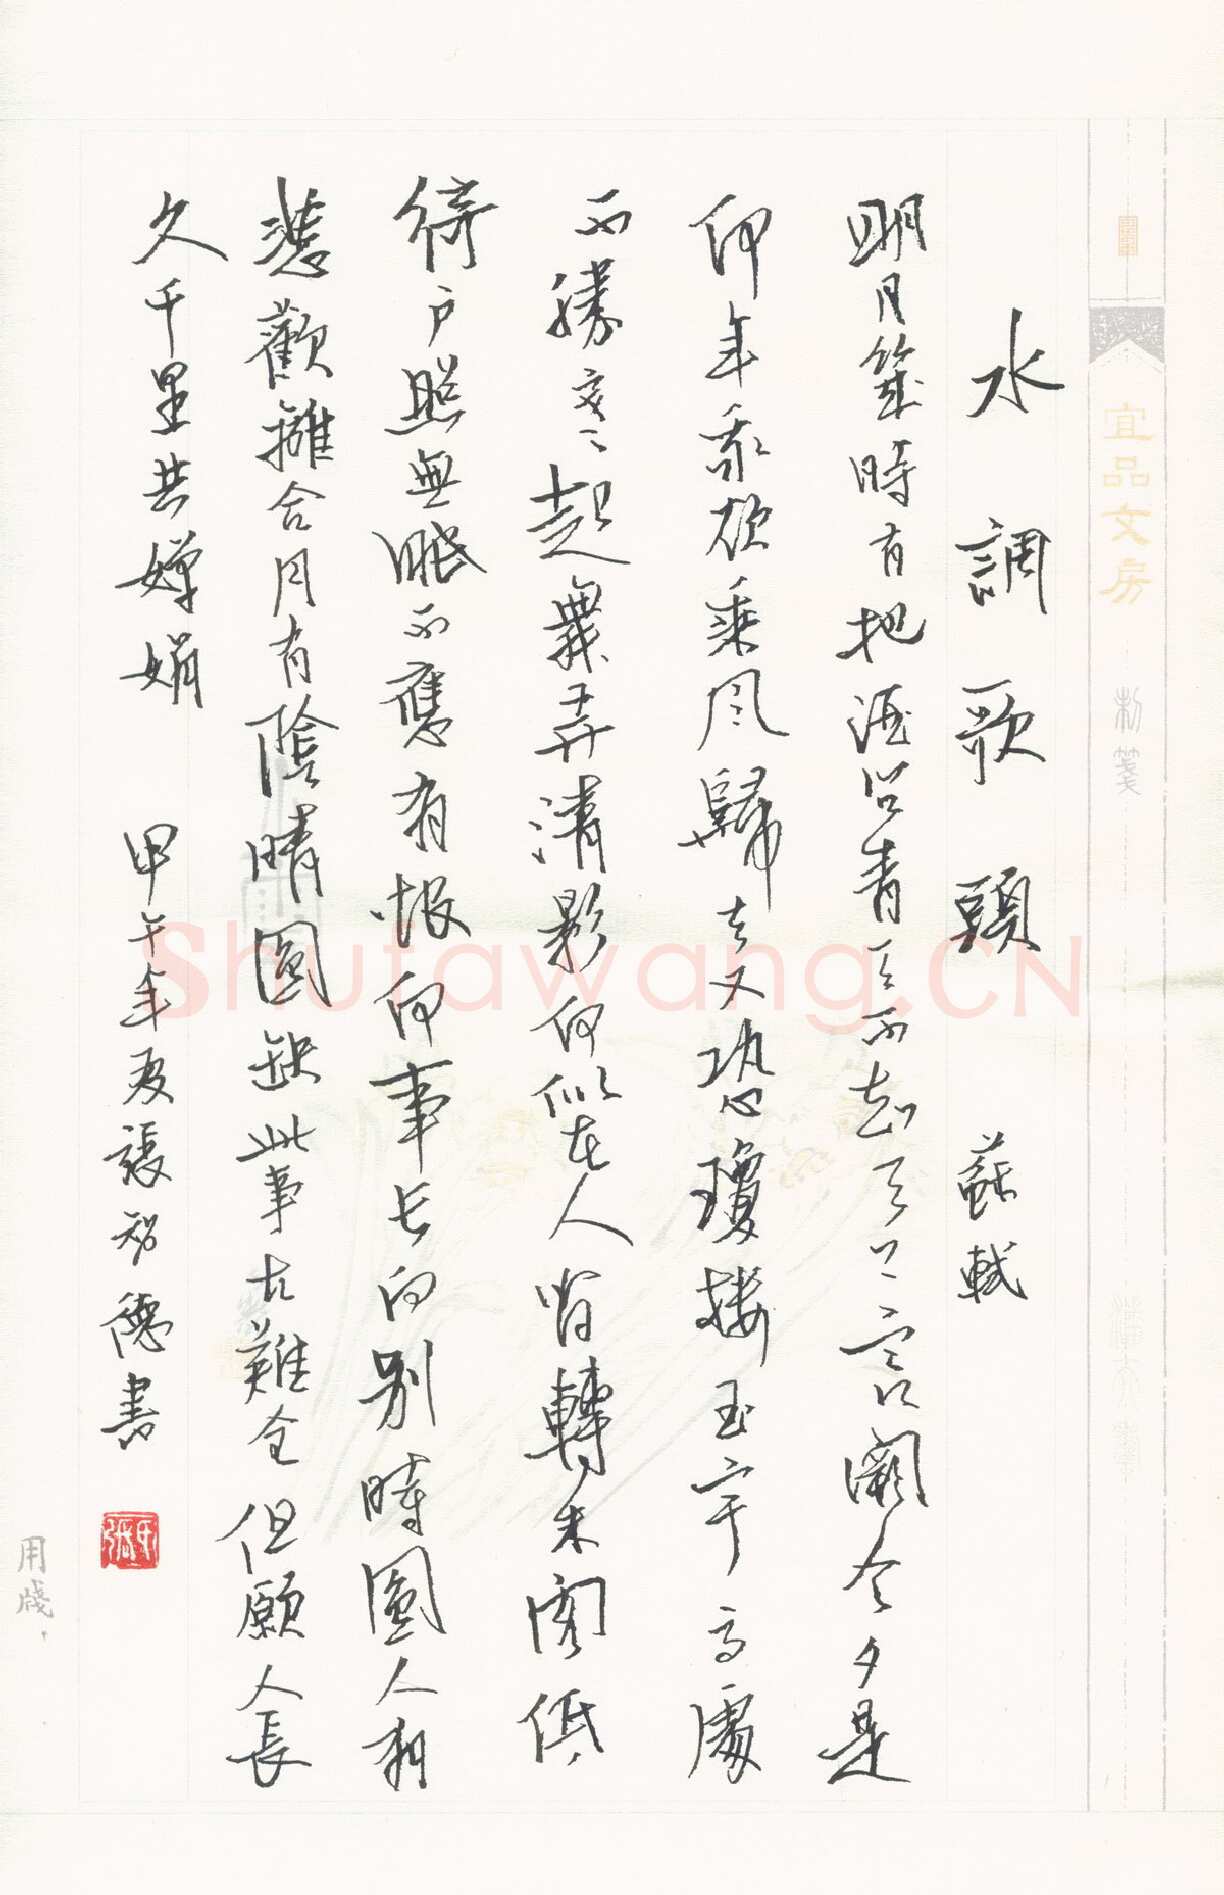 宜品文房
制箋
水調歌頭 蘇軾
明月幾時有把酒問青天不知天上宮闕今夕是
何年我欲乘风歸去又恐瓊樓玉宇高處
不勝寒起舞弄清影何似在人間轉朱閣低
綺户照無眠不應有恨何事长向別時圓人有
悲歡離合月有陰晴圓缺此事古難全但願人長
久千里共嬋娟 甲午年夏張智德書
用牋
Shufawang.CN